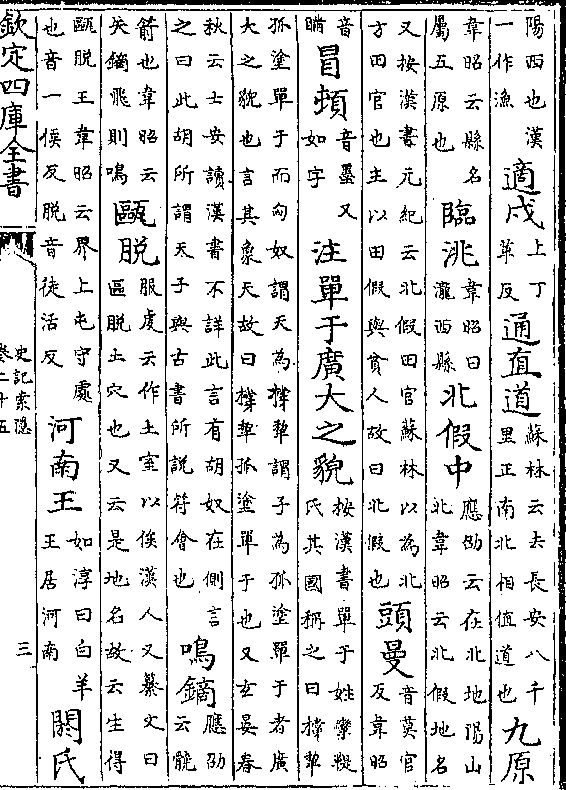 陽西也漢一作漁適戍上丁革反通直道蘇林云去長安八千里正南北相值道也九原
韋昭云縣名屬五原也臨洮韋昭曰隴西縣北假中應劭云在北地陽山北韋昭云北假地名
又按漢書元紀云北假田官蘇林以為北方田官也主以田假與貧人故曰北假也頭曼音莫官反韋昭
音瞞冒頓音墨又如字注單于廣大之貌按漢書單于姓攣鞮氏其國稱之曰撐犂
孤塗單于而匈奴謂天為撐犂謂子為孤塗單于者廣大之貌也言其象天故曰撐犂孤塗單于也又玄晏春
秋云士安讀漢書不詳此言有胡奴在側言之曰此胡所謂天子與古書所說符會也鳴鏑應劭云髐
箭也韋昭云矢鏑飛則鳴甌脫服虔云作土室以候漢人又纂文曰區脫土穴也又云是地名故云生得
甌脫王韋昭云界上屯守處也音一侯反脫音徒活反河南王如淳曰白羊王居河南閼氏
欽定四庫全書
史記索隱
卷二十五
三